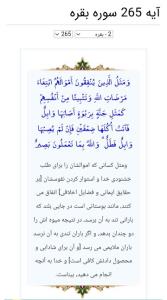 آیه 265 سوره بقره
2 - بقره
265
وَمَثَلُ الَّذِينَ يُنْفِقُونَ أَمْوَالَهُمُ ابْتِغَاءَ
مَرْضَاتِ اللَّهِ وَتَثْبِيتًا مِنْ أَنْفُسِهِمْ
كَمَثَلِ جَنَّةٍ بِرَبْوَةٍ أَصَابَهَا وَابِلٌ
فَآتَتْ أُكُلَهَا ضِعْفَيْنِ فَإِنْ لَمْ يُصِبْهَا
وَابِلٌ فَطَلٌّ وَاللَّهُ بِمَا تَعْمَلُونَ بَصِيرٌ
ومثل کسانی که اموالشان را برای طلب
خشنودی خدا و استوار کردن نفوسشان [بر
حقایق ایمانی و فضایل اخلاقی] انفاق می
کنند، مانند بوستانی است در جایی بلند که
بارانی تند به آن برسد، در نتیجه میوه اش را
دو چندان بدهد، و اگر باران تندی به آن نرسد
باران ملایمی می رسد [و آن برای شادابی و
محصول دادنش کافی است] و خدا به آنچه
انجام می دهید، بیناست.